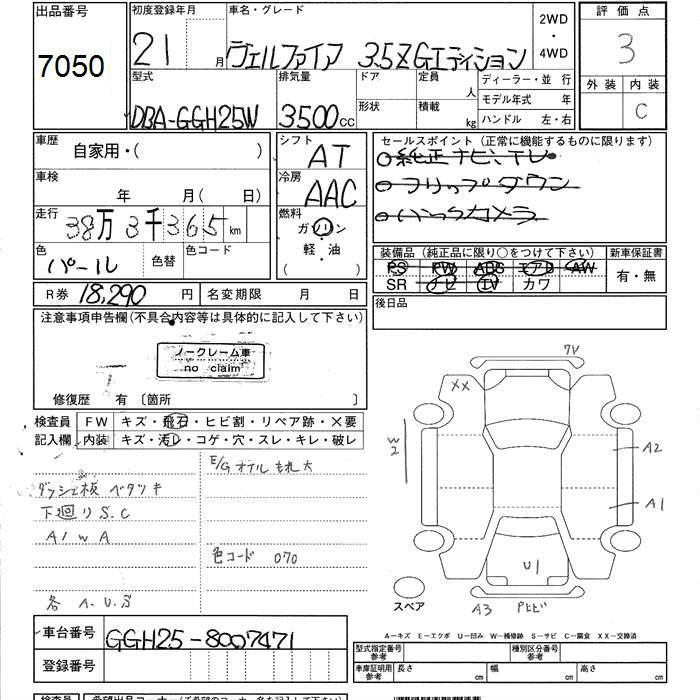 出品番号
7050
初度登録年月
21 月
車名・グレード
ヴェルファイア 3.5Z Gエディション
2WD
・
4WD
評価点
3
外装 内装
C
型式
DBA-GGH25W
排気量
3500cc
ドア
形状
定員
人
積載
kg
ディーラー・並 行
モデル年式 年
ハンドル 左・右
車歴
自家用・( )
車検
年 月( 日)
走行
38万3千365km
色
パール
色替
色コード
シフト
AT
冷房
AAC
燃料
ガソリン
・
軽・油
( )
セールスポイント (正常に機能するものに限ります)
純正ナビ、TV
フリップダウン
バックカメラ
装備品 (純正品に限り○をつけて下さい)
PS PW ABS エアB AW
SR ナビ TV カワ
新車保証書
有・無
後日品
R券 18,290 円
名変期限 月 日
注意事項申告欄(不具合内容等は具体的に記入して下さい)
ノークレーム車
no claim
修復歴 有 〔箇所 〕
検査員
記入欄
FW キズ・飛石・ヒビ割・リペア跡・X要
内装 キズ・汚レ・コゲ・穴・スレ・キレ・破レ
E/Gオイルもれ大
ベタツキ
下廻りS.C
A/W A
色コード 070
各 A.U.S
7V
XX
W2
A2
A1
U1
A3
スペア
A-キズ E-エクボ U-凹み W-補修跡 S-サビ C-腐食 XX-交換済
車台番号
GGH25-8007471
登録番号
型式指定番号
参考
種別区分番号
参考
車庫証明用
参考
長さ cm
幅 cm
高さ cm
検査員